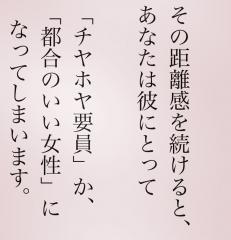 その距離感を続けると、
あなたは彼にとって
「チヤホヤ要員」か、
「都合のいい女性」に
なってしまいます。